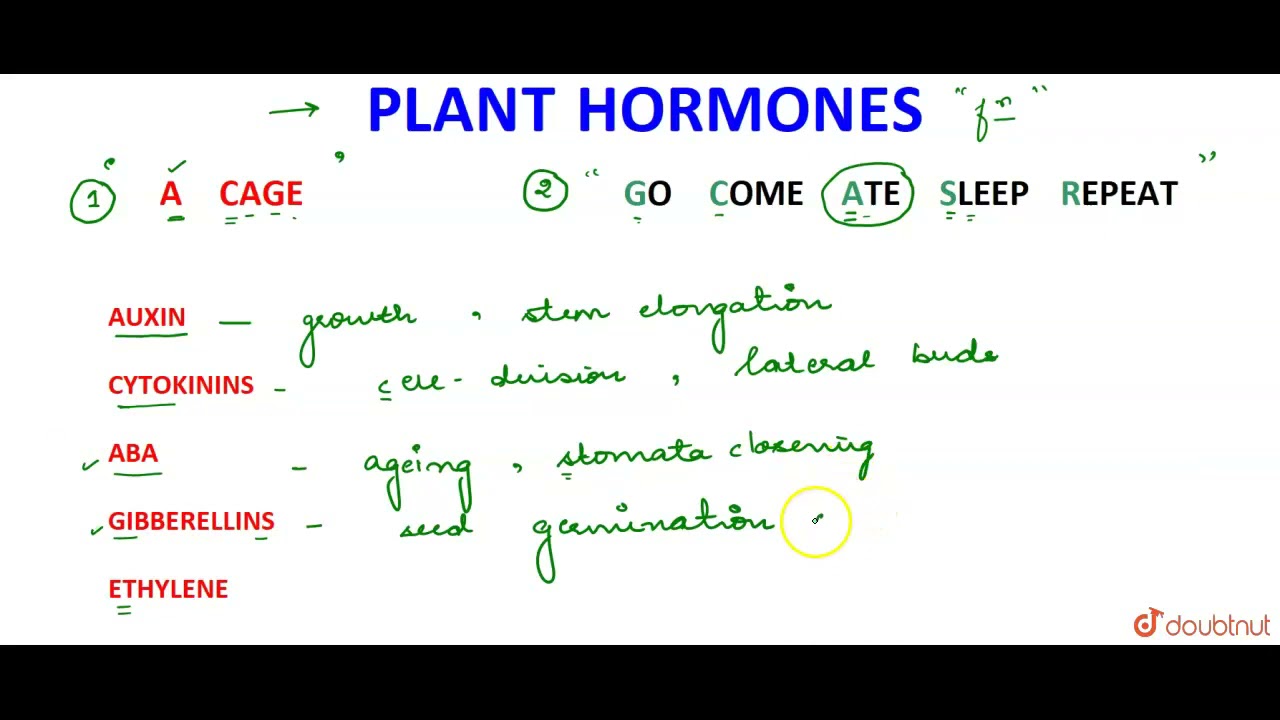 → PLANT HORMONES "fⁿ"
1 ' A CAGE '
2 " GO COME ATE SLEEP REPEAT "
AUXIN — growth , stem elongation
CYTOKININS - cell - division , lateral buds
ABA - ageing , stomata closening
GIBBERELLINS - seed germination
ETHYLENE
doubtnut